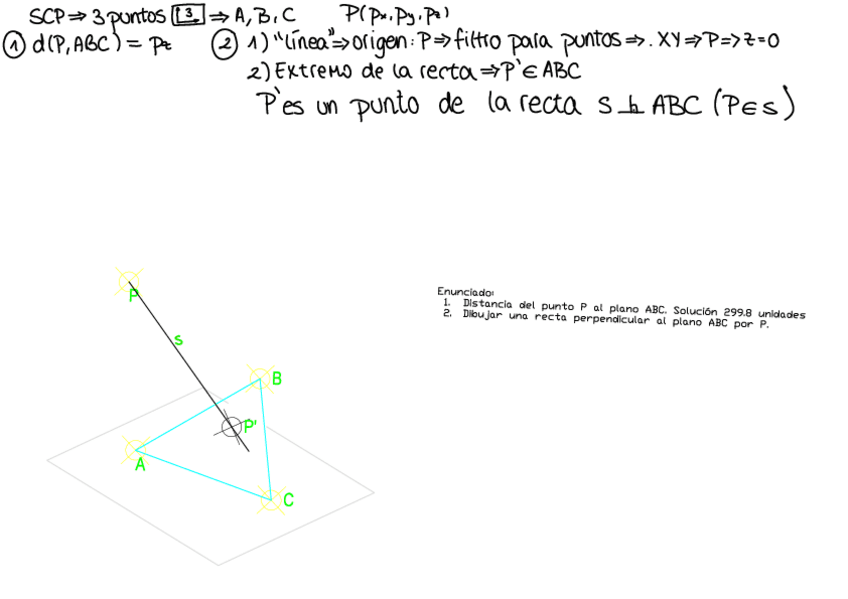 SCP⇒3 puntos [3] ⇒ A, B, C P(px, py, pz)
① d(P, ABC) = pz ② 1) "línea"⇒origen: P⇒filtro para puntos⇒.XY⇒P=>z=0
2) Extremo de la recta⇒P'∈ABC
P'es un punto de la recta s ⊥ ABC (P∈s)
P
s
B
P'
A
C
Enunciado:
1. Distancia del punto P al plano ABC. Solución 299.8 unidades
2. Dibujar una recta perpendicular al plano ABC por P.